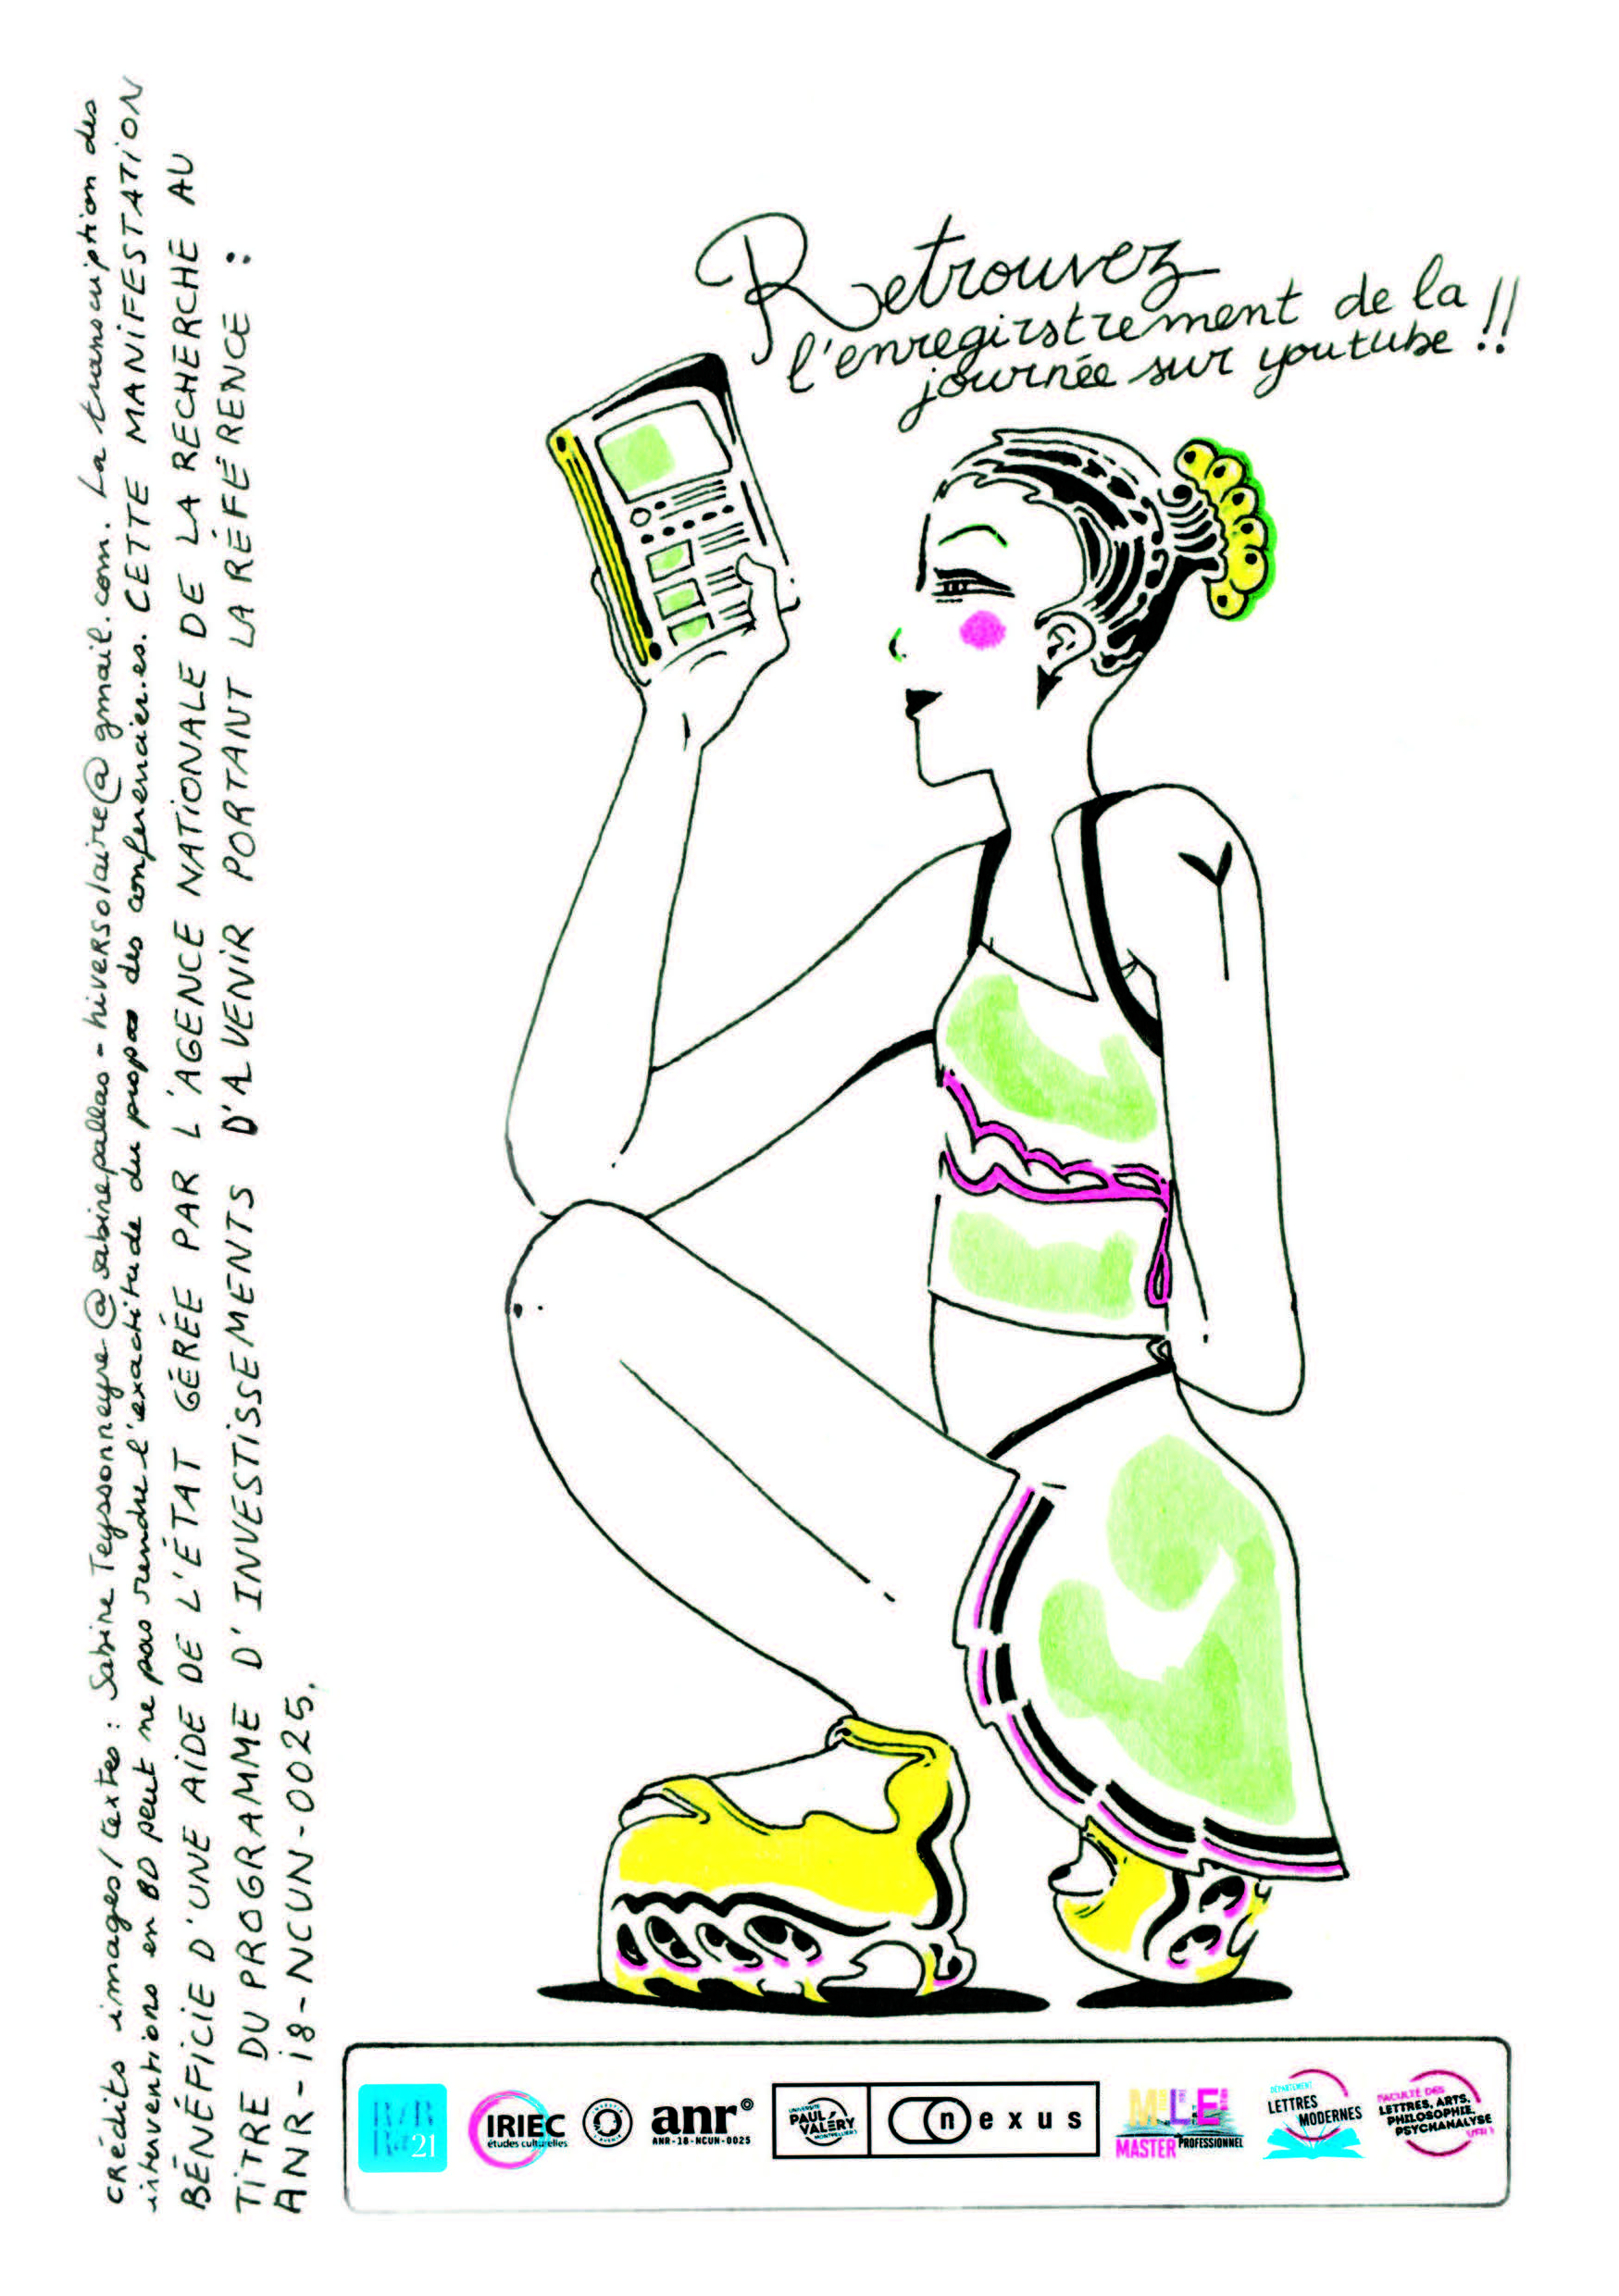 Retrouvez
l'enregirstrement de la
journée sur youtube !!
crédits images/textes : Sabine Teyssonneyre @sabinepallas - hiversolaire@gmail.com. La transcription des
interventions en BD peut ne pas rendre l'exactitude du propos des conférencier.es. CETTE MANIFESTATION
BÉNÉFICIE D'UNE AIDE DE L'ÉTAT GÉRÉE PAR L'AGENCE NATIONALE DE LA RECHERCHE AU
TITRE DU PROGRAMME D'INVESTISSEMENTS D'AVENIR PORTANT LA RÉFÉRENCE :
ANR-18-NCUN-0025.
21
IRIEC
études culturelles
anr
ANR-18-NCUN-0025
UNIVERSITÉ
PAUL
VALÉRY
MONTPELLIER 3
nexus
MLE
MASTER PROFESSIONNEL
DÉPARTEMENT
LETTRES
MODERNES
FACULTÉ DES
LETTRES, ARTS,
PHILOSOPHIE,
PSYCHANALYSE
UFR 1